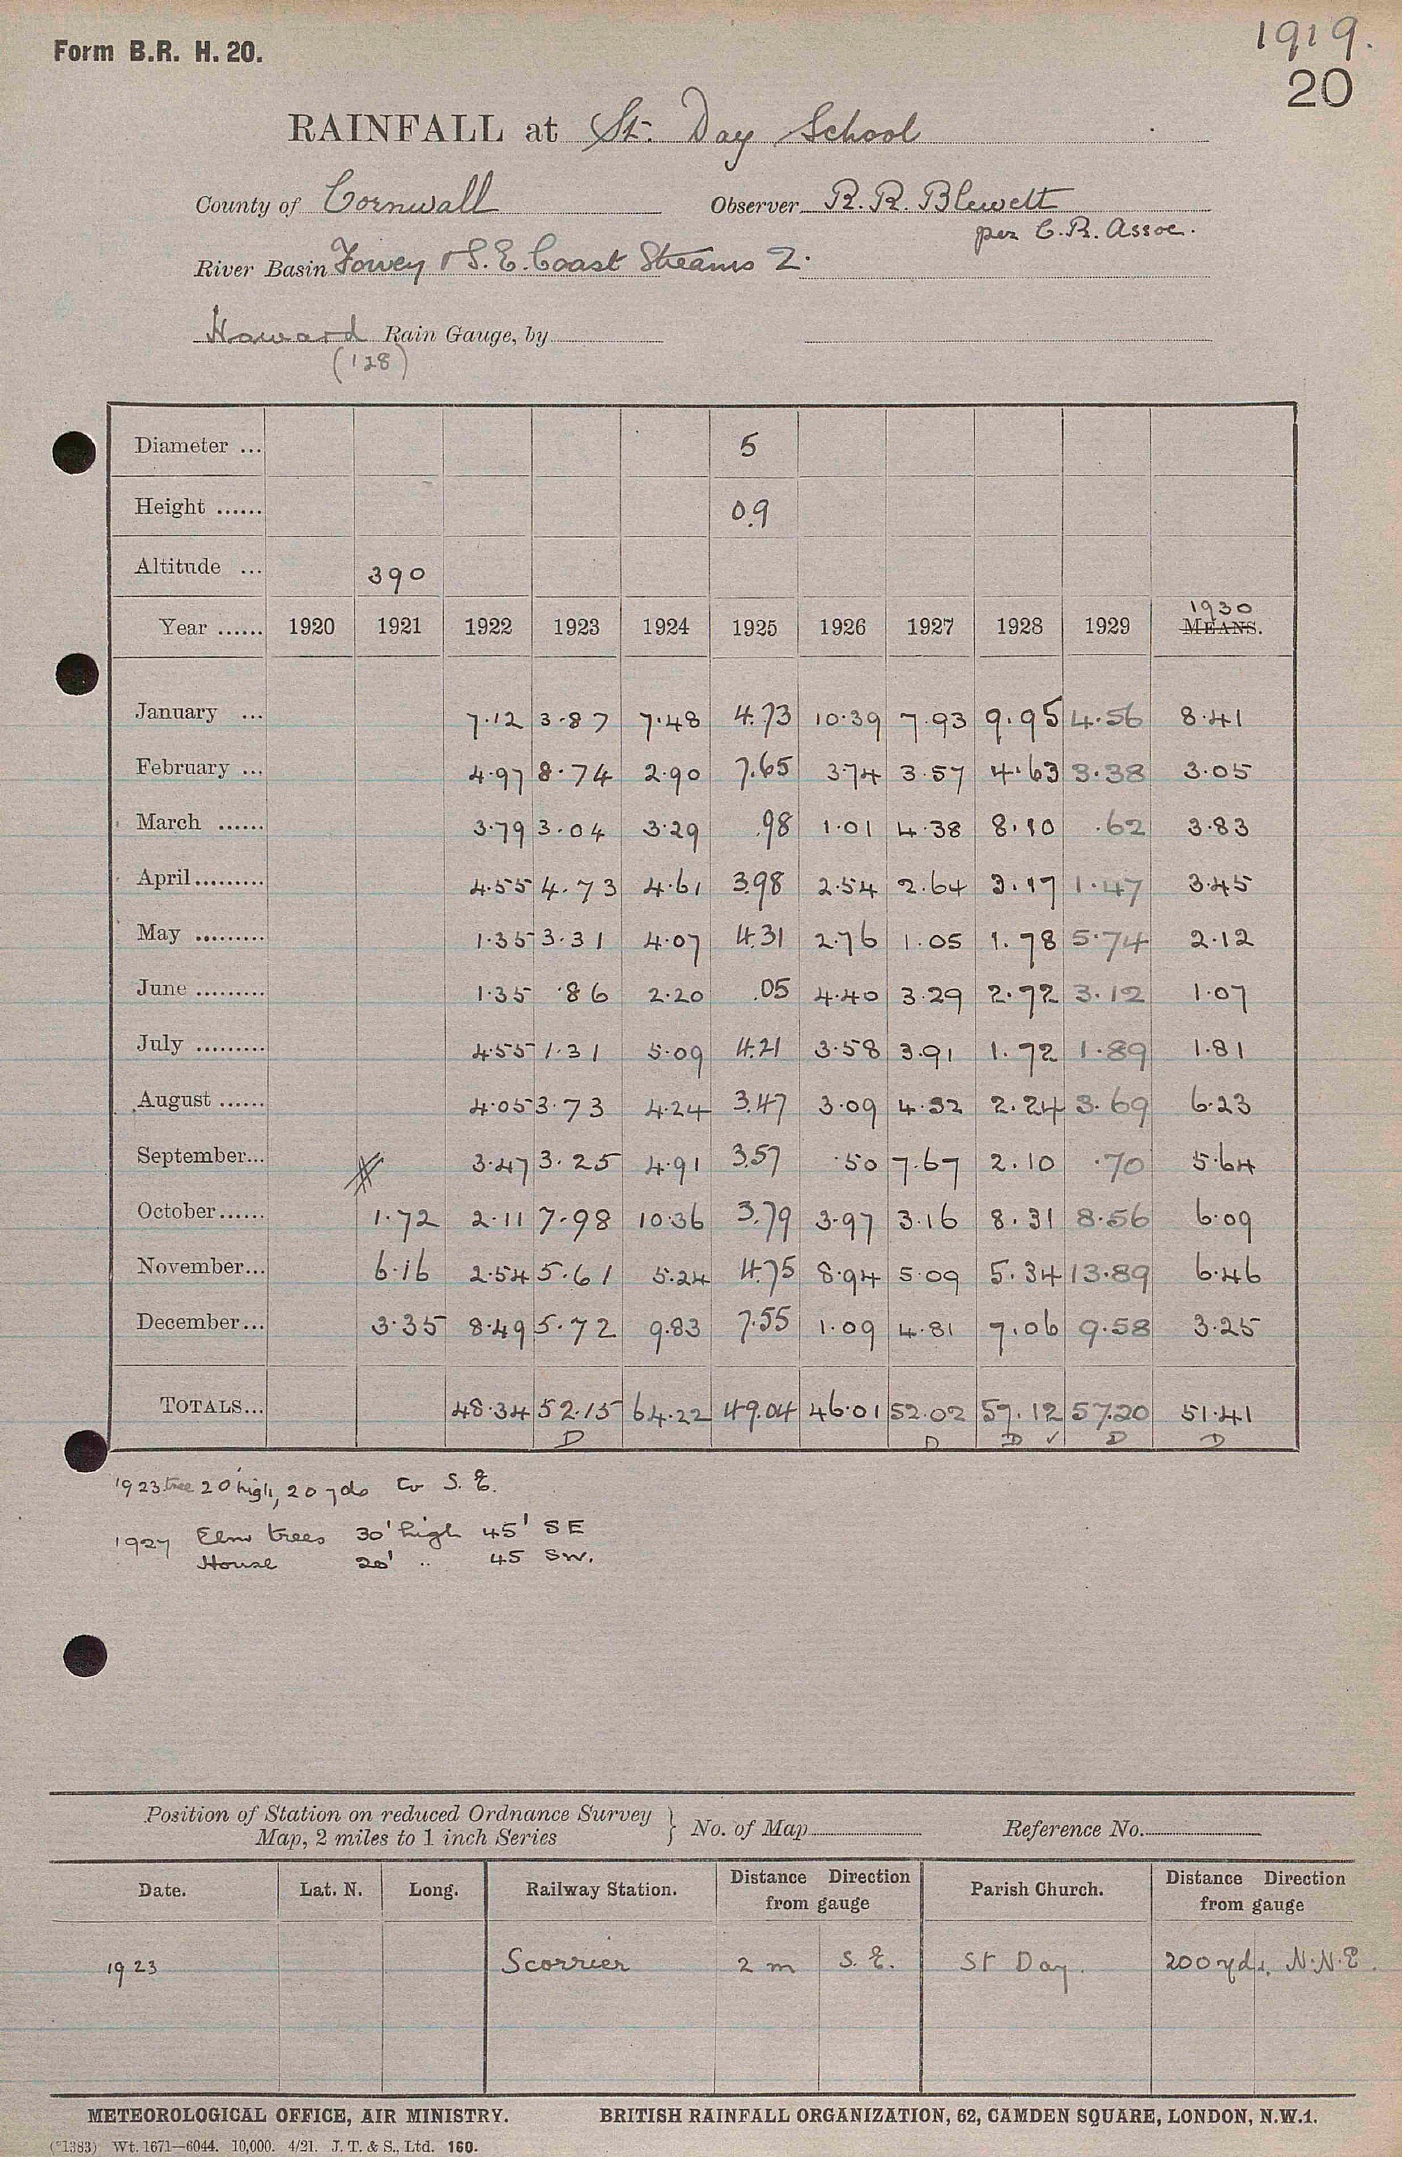 Form B.R. H. 20.
1919.
20
RAINFALL at St. Day School
County of Cornwall Observer R. R. Blewett
per C. R. Assoc.
River Basin Fowey & S.E. Coast Streams 2.
Howard Rain Gauge, by
(128)
Diameter ... 5
Height ...... 0.9
Altitude ... 390
1930
Year ...... 1920 1921 1922 1923 1924 1925 1926 1927 1928 1929 MEANS.
January ... 7.12 3.87 7.48 4.73 10.39 7.93 9.95 4.56 8.41
February ... 4.97 8.74 2.90 7.65 3.74 3.57 4.63 3.38 3.05
March ...... 3.79 3.04 3.29 .98 1.01 4.38 8.10 .62 3.83
April ......... 4.55 4.73 4.61 3.98 2.54 2.64 3.17 1.47 3.45
May ......... 1.35 3.31 4.07 4.31 2.76 1.05 1.78 5.74 2.12
June ......... 1.35 .86 2.20 .05 4.40 3.29 2.72 3.12 1.07
July ......... 4.55 1.31 5.09 4.21 3.58 3.91 1.72 1.89 1.81
August ...... 4.05 3.73 4.24 3.47 3.09 4.52 2.24 3.69 6.23
September... 3.47 3.25 4.91 3.57 .50 7.67 2.10 .70 5.64
October...... 1.72 2.11 7.98 10.36 3.79 3.97 3.16 8.31 8.56 6.09
November... 6.16 2.54 5.61 5.24 4.75 8.94 5.09 5.34 13.89 6.46
December... 3.35 8.49 5.72 9.83 7.55 1.09 4.81 7.06 9.58 3.25
TOTALS... 48.34 52.15 64.22 49.04 46.01 52.02 57.12 57.20 51.41
D D D ✓ D D
1923 tree 20' high, 20 yds to S.E.
1927 Elm trees 30' high 45' SE
House 20' .. 45 SW.
Position of Station on reduced Ordnance Survey
Map, 2 miles to 1 inch Series } No. of Map Reference No.
Date. Lat. N. Long. Railway Station. Distance Direction from gauge Parish Church. Distance Direction from gauge
1923 Scorrier 2 m S.E. St Day. 200 yds. N.N.E.
METEOROLOGICAL OFFICE, AIR MINISTRY. BRITISH RAINFALL ORGANIZATION, 62, CAMDEN SQUARE, LONDON, N.W.1.
(*1383) Wt. 1671—6044. 10,000. 4/21. J. T. & S., Ltd. 160.